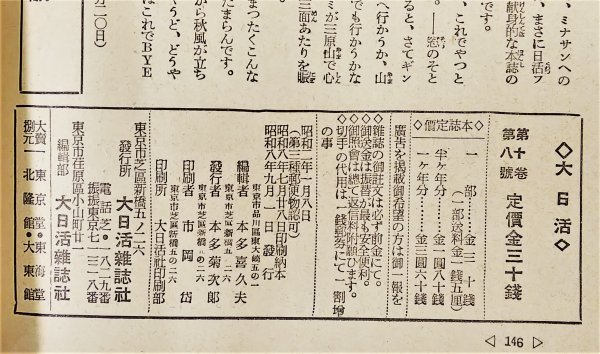 ミナサンへの
、まさに日活フ
献身的な本誌の
です。
、これでやつと
。――窓のそと
ると、さてギン
へ行かうか、山
でも行かうかな
ミが三原山で心
三面あたりを賑
まつたくこんな
たまらんです。
から秋風が立ち
うど、どうや
はこれでBYE
月二〇日）
◇大日活◇
第十卷
第八號
定價金三十錢
◇本誌定價◇
一部……金三十錢
（一部送料金一錢五厘）
半ケ年分……金一圓八十錢
一ケ年分……金三圓六十錢
廣吿を掲載御希望の方は御一報を
◇雜誌の御註文は必ず前金にて。
◇御送金は振替が最も安全便利。
◇御照會は總て返信料附願ひます。
◇切手の代用は一錢郵券にて一割增の事
昭和二年一月八日
（第三種郵便物認可）
昭和八年七月廿八日印刷納本
昭和八年九月一日發行
東京市品川區東大崎五の一
編輯者 本多喜久夫
東京市芝區新橋五ノ二六
發行者 本多菊次郎
東京市芝區新橋五の二六
印刷者 市岡岱
東京市芝區新橋五の二六
印刷所 大日活社印刷部
東京市芝區新橋五ノ二六
發行所 大日活雜誌社
電話芝一八二九番
振替東京七一三一八番
東京市荏原區小山町廿一
編輯部 大日活雜誌社
大賣捌元 東京堂・東海堂
北隆館・大東館
◁ 146 ▷